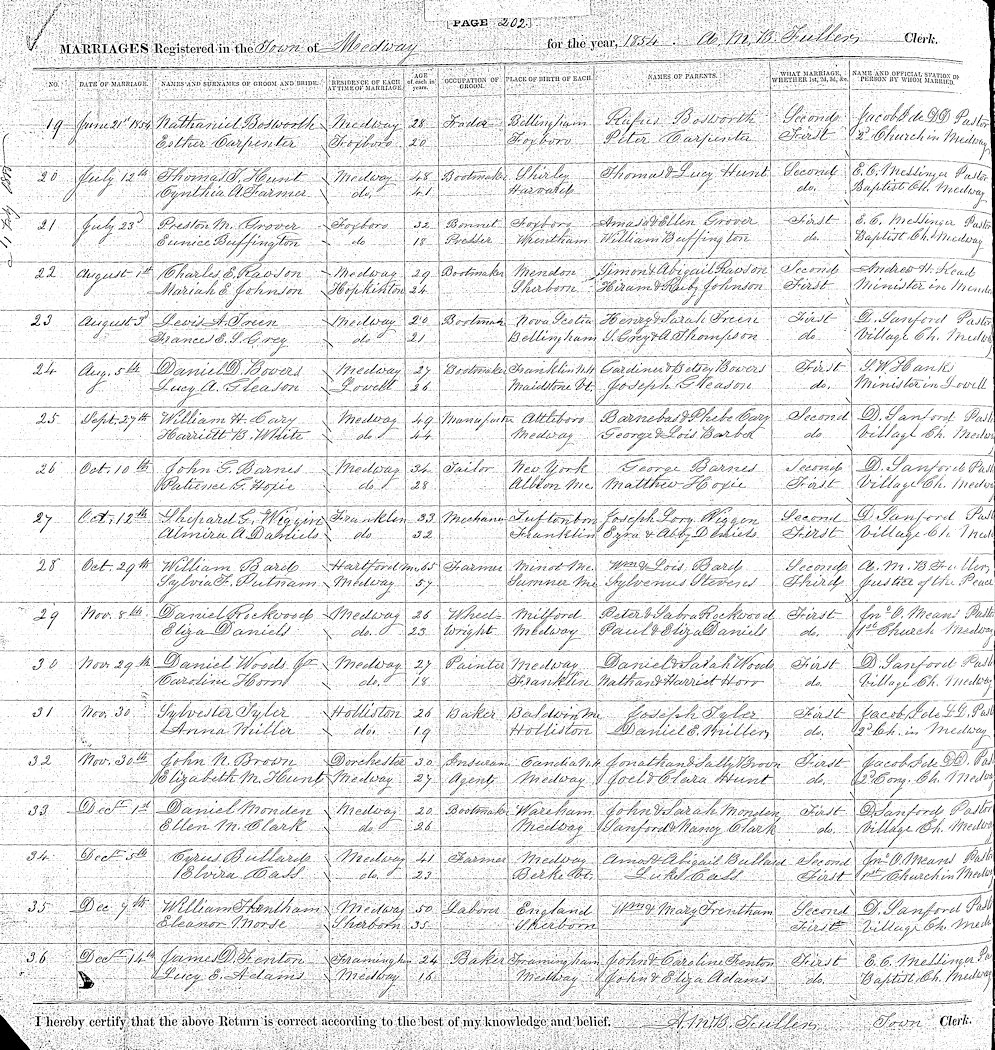 PAGE 202
MARRIAGES Registered in the Town of Medway for the year, 1854. A. M. B. Fuller, Clerk.
NO. DATE OF MARRIAGE. NAMES AND SURNAMES OF GROOM AND BRIDE. RESIDENCE OF EACH AT TIME OF MARRIAGE. AGE of each in years. OCCUPATION OF GROOM. PLACE OF BIRTH OF EACH. NAMES OF PARENTS. WHAT MARRIAGE, WHETHER 1st, 2d, 3d, &c. NAME AND OFFICIAL STATION OF PERSON BY WHOM MARRIED.
19 June 21st 1854 Nathaniel Bosworth Medway 28 Bellingham Rufus Bosworth Second Jacob Ide DD Pastor
Esther Carpenter Foxboro 20 Foxboro Peter Carpenter First 2d Church in Medway
20 July 12th Thomas T. Hunt Medway 48 Bootmaker Shirley Thomas & Lucy Hunt Second E. C. Messinger Pastor
Cynthia A Farmer do. 41 Harvard do. Baptist Ch. Medway
21 July 23d Preston M. Grover Foxboro 32 Bonnet Foxboro Amasa & Ellen Grover First E. C. Messinger Pastor
Eunice Buffington do 18 Presser Wrentham William Buffington do. Baptist Ch. Medway
22 August 1st Charles E. Rawson Medway 29 Bootmaker Mendon Simon & Abigail Rawson Second Andrew H. Read
Mariah E Johnson Hopkinton 24 Sherborn Hiram & Ruby Johnson First Minister in Mendon
23 August 3d Lewis A. Treen Medway 20 Bootmaker Nova Scotia Henry & Sarah Treen First D. Sanford Pastor
Frances E. S. Grey do 21 Bellingham S. Grey & A Thompson do. Village Ch. Medway
24 Aug. 5th Daniel D. Bowers Medway 27 Bootmaker Franklin NH Gardiner & Betsey Bowers First S. W. Hanks
Lucy A. Gleason Lowell 26 Maidstone Vt. Joseph Gleason do. Minister in Lowell
25 Sept. 27th William H. Cary Medway 49 Manufacter Attleboro Barnebas & Phebe Cary Second D. Sanford Past
Harriett B. White do 44 Medway George & Lois Barber do Village Ch. Medway
26 Oct. 10th John G. Barnes Medway 34 Tailor New York George Barnes Second D. Sanford Past
Patience G. Hoxie do. 28 Albion Me. Matthew Hoxie First Village Ch. Medway
27 Oct. 12th Shepard G. Wiggin Franklin 33 Mechanic Tuftonboro Joseph Wiggen Second D Sanford Past
Almira A Daniels do 32 Franklin Ezra & Abby Daniels First Village Ch. Med
28 Oct. 29th William Bard Hartford Me 65 Farmer Minot Me. Wm & Lois Bard Second A. M. B Fuller,
Sylvia F. Putnam Medway 57 Sumner Me Sylvenus Stevens Third Justice of the Peace
29 Nov. 8th Daniel Rockwood Medway 26 Wheel- Milford Peter & Sabra Rockwood First Jno O. Means Pastor
Eliza Daniels do. 23 Wright Medway Paul & Eliza Daniels do. 1st Church Medway
30 Nov. 29th Daniel Woods Jr Medway 27 Painter Medway Daniel & Sarah Woods First D. Sanford Past
Caroline Horn do. 18 Franklin Nathan & Harriet Horn do. Village Ch. Medway
31 Nov. 30 Sylvester Tyler Holliston 26 Baker Baldwin Me Joseph Tyler First Jacob Ide D.D. Past
Anna Miller do. 19 Holliston Daniel E. Miller, do. 2d Ch. in Medway
32 Nov. 30th John N. Brown Dorchester 30 Insuran Candia NH Jonathan & Sally Brown First Jacob Ide DD. Past
Elizabeth M. Hunt, Medway 27 Agent, Medway Joel & Clara Hunt do. 2d Cong. Ch. Medway
33 Decr 1st Daniel Monden Medway 20 Bootmaker Wareham John & Sarah Monden, First D. Sanford Pastor
Ellen M. Clark do 26 Medway Sanford & Nancy Clark do. Village Ch. Medway
34 Decr 5th Cyrus Bullard Medway 41 Farmer Medway Amos & Abigail Bullard Second Jno O. Means Pastor
Elvira Cass do. 23 Berke Vt. Luke Cass First 1st Church in Medway
35 Dec 9th William Frentham Medway 50 Laborer England Wm & Mary Frentham Second D. Sanford Past
Eleanor Morse Sherborn 35 Sherborn First Village Ch. Med
36 Decr 14th James D. Fenton Framingham 24 Baker Framingham John & Caroline Fenton First E. C. Messinger Pa
Lucy E. Adams Medway 16 Medway John & Eliza Adams do. Baptist Ch. Medway
I hereby certify that the above Return is correct according to the best of my knowledge and belief. A. M. B. Fuller, Town Clerk.